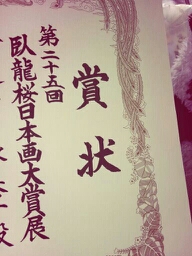 賞状
第二十五回
臥龍桜日本画大賞展
殿